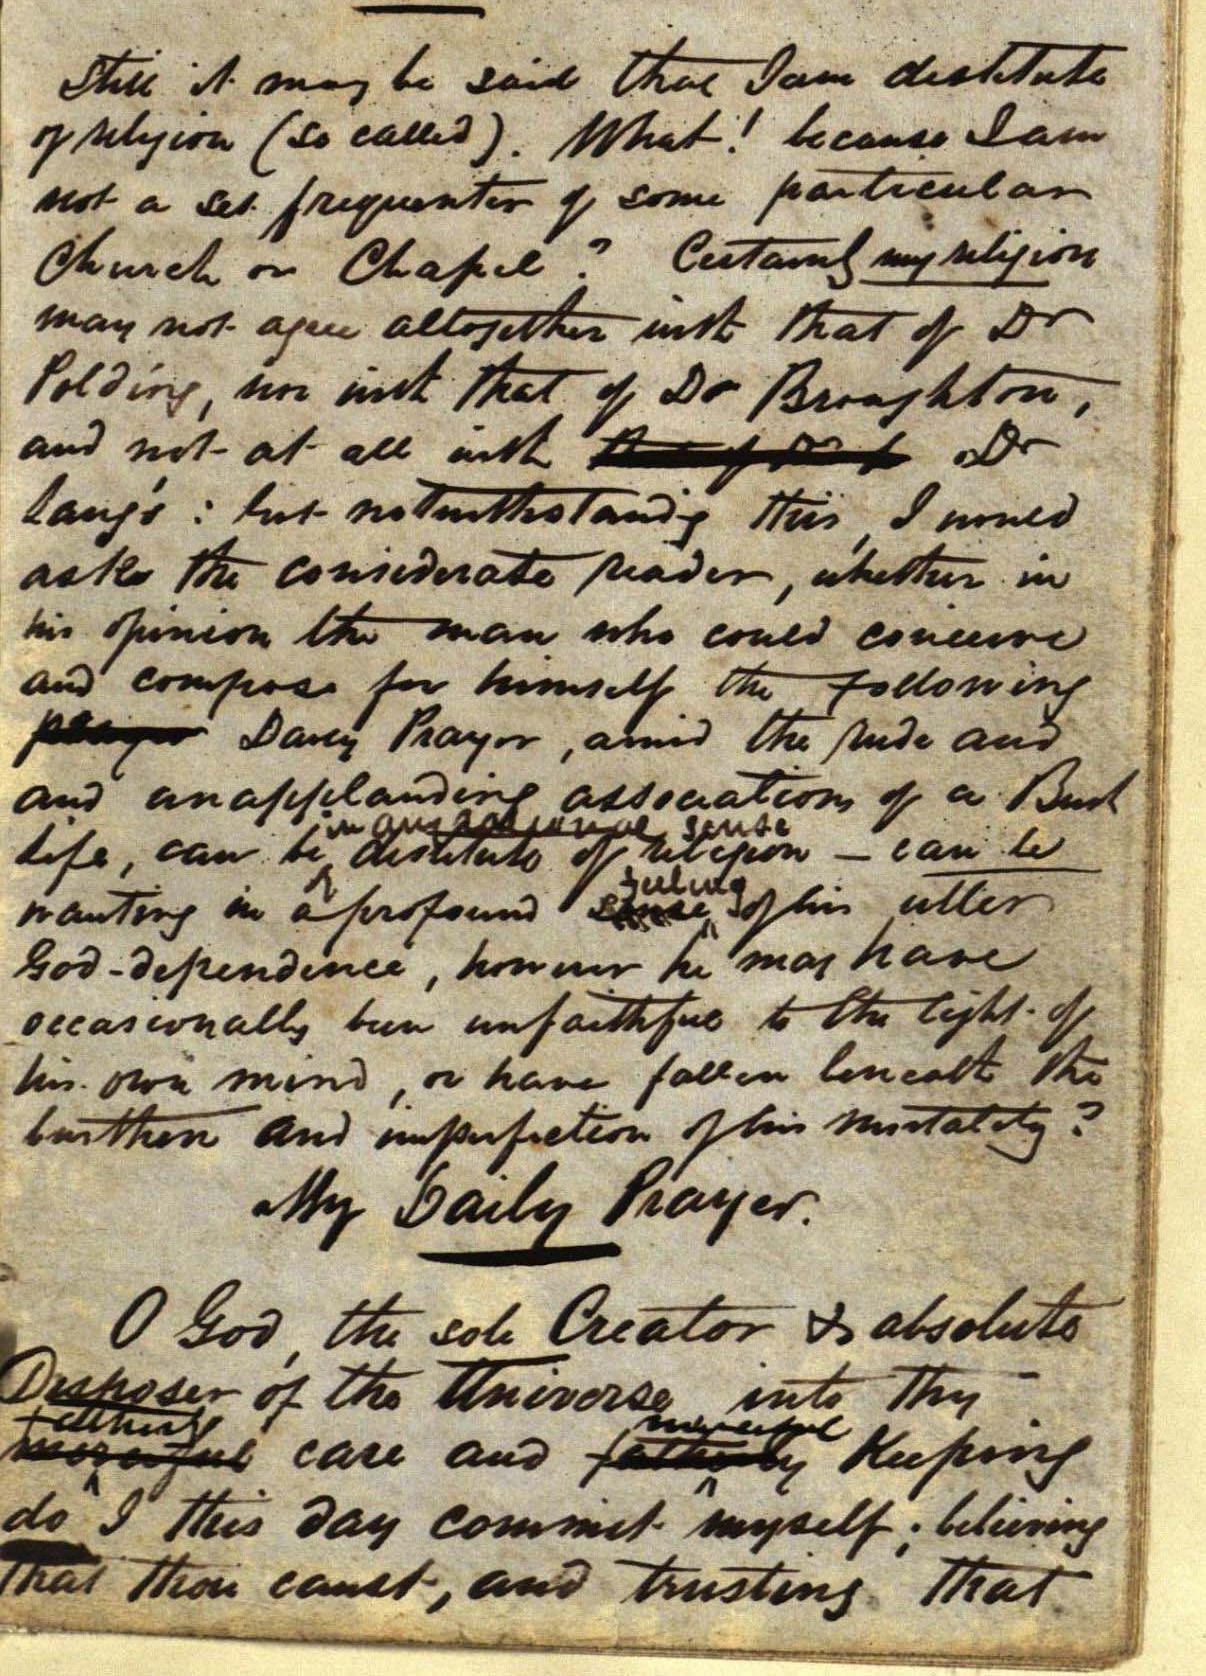 Still it may be said that I am destitute
of religion (so called). What! because I am
not a set frequenter of some particular
Church or Chapel? Certainly my religion
may not agree altogether with that of Dr
Polding, nor with that of Dr Broughton,
and not at all with that of Dr L Dr
Lang's: but notwithstandig this, I would
ask the considerate reader, whether in
his opinion the man who could conceive
and compose for himself the following
prayer Daily Prayer, amid the rude and
and unapplauding associations of a Bush
in any rational sense
life, can be destitute of religion – can be
feeling
wanting in a profound sense of his utter
God-dependence, however he may have
occasionally been unfaithful to the light of
his own mind, or have fallen beneath the
burthen and imperfection of his mortality?
My Daily Prayer.
O God, the sole Creator & absolute
Disposer of the Universe, into thy
fatherly merciful
merciful care and fatherly keeping
do I this day commit myself; believing
that thou canst, and trusting that